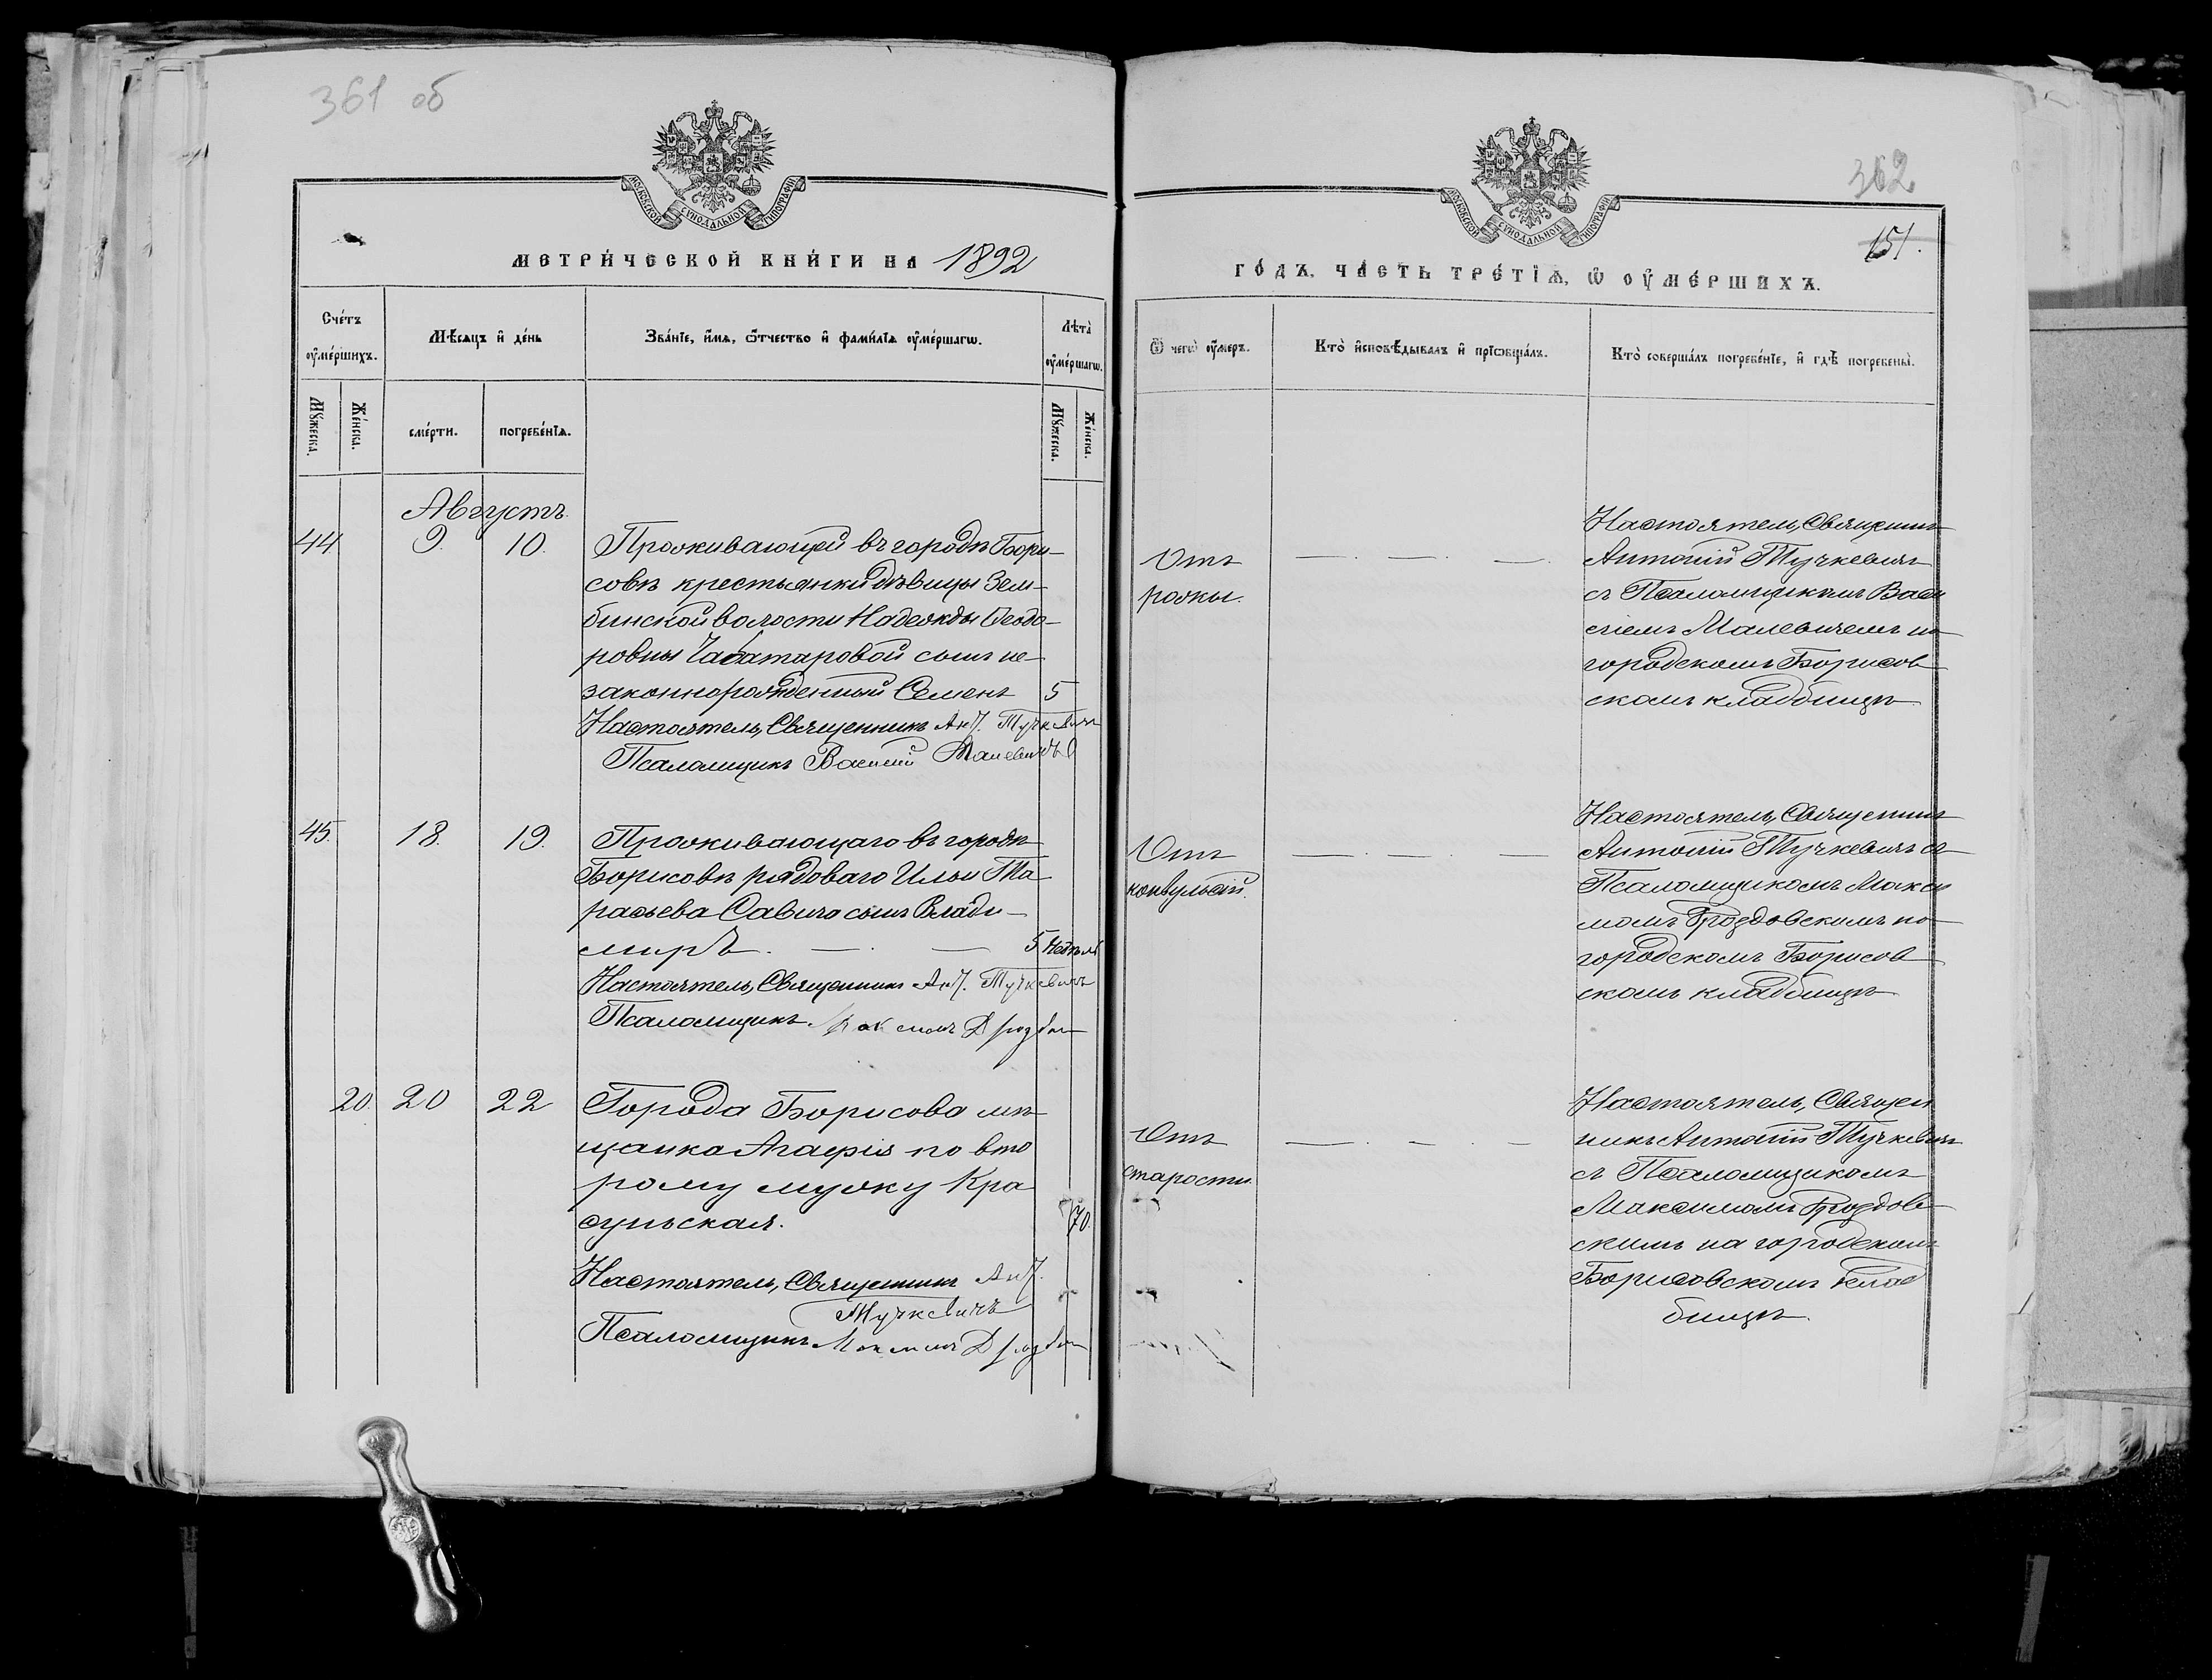 361 об
МОСКОВСКОЙ СѴНОДАЛЬНОЙ ТИПОГРАФІИ
МЕТРИ́ЧЕСКОЙ КНИ́ГИ НА 1892
Сче́тъ оу҆ме́ршихъ.
Мѣ́сяцъ и҆ де́нь
Зва́нїе, и҆́мѧ, ѻ҆́тчество и҆ фами́лїѧ оу҆ме́ршагѡ.
Лѣ́та оу҆ме́ршагѡ.
Мꙋ́жеска.
Же́нска.
сме́рти.
погребе́нїѧ.
Мꙋ́жеска.
Же́нска.
Августъ.
44 9. 10. Проживающей въ городѣ Бори-
совѣ крестьянки дѣвицы Зем-
бинской волости Надежды Ѳеодо-
ровны Чабатаровой сынъ не-
законнорожденный Семенъ 5
Настоятель, Священникъ Ант. Тучкевичъ
Псаломщикъ Василій Малевичъ
45. 18. 19. Проживающаго въ городѣ
Борисовѣ рядоваго Ильи Та
расьева Савича сынъ Влади-
миръ. — . — 5 недѣль
Настоятель, Священникъ Ант. Тучкевичъ
Псаломщикъ
20. 20 22 Города Борисова мѣ
щанка Агафія по вто
рому мужу Кра
суньская. 70.
Настоятель, Священникъ Ант.
Тучкевичъ
Псаломщикъ
362
МОСКОВСКОЙ СѴНОДАЛЬНОЙ ТИПОГРАФІИ
151.
ГО́ДЪ, ЧА́СТЬ ТРЕ́ТЇѦ, Ѡ҆ ОУ҆МЕ́РШИХЪ.
Ѿ чегѡ̀ оу҆́меръ.
Кто̀ и҆сповѣ́дывалъ и҆ прїѡбща́лъ.
Кто̀ соверша́лъ погребе́нїе, и҆ гдѣ̀ погребены̀.
Отъ
рожы.
— . — . —
Настоятель, Священникъ
Антоній Тучкевичъ
съ Псаломщикомъ Васи
ліемъ Малевичемъ на
городскомъ Борисов
скомъ кладбищѣ
Отъ
конвульсій.
— . — . —
Настоятель, Священникъ
Антоній Тучкевичъ съ
Псаломщикомъ Макси
момъ Дроздовскимъ на
городскомъ Борисов
скомъ кладбищѣ
Отъ
старости.
— . — . —
Настоятель, Священ
никъ Антоній Тучкевичъ
съ Псаломщикомъ
Максимомъ Дроздов
скимъ на городскомъ
Борисовскомъ клад
бищѣ.